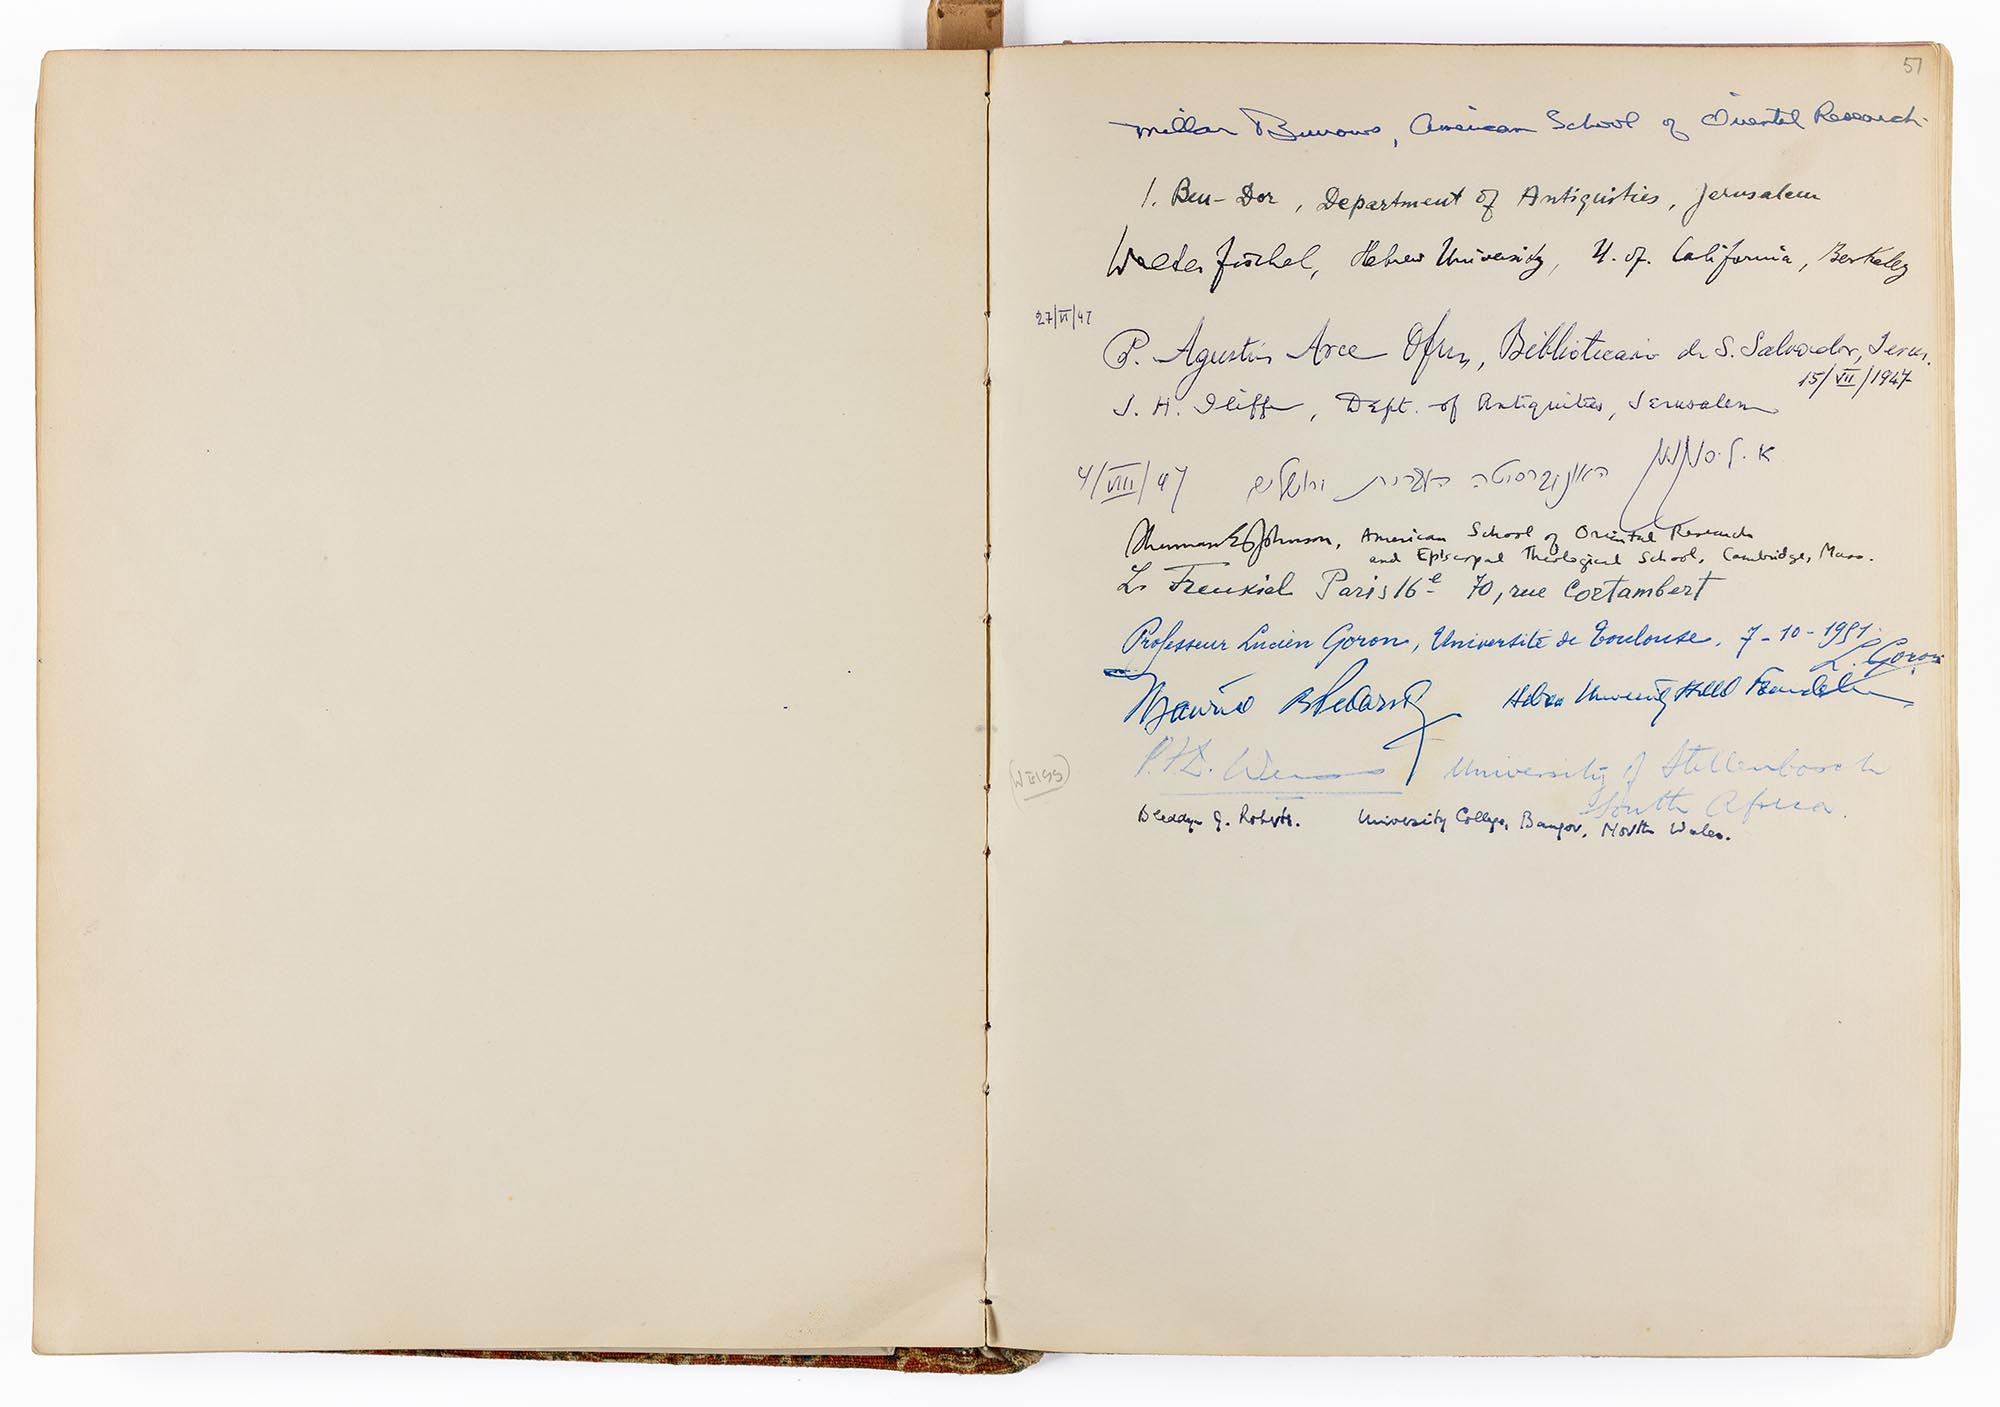 51
Millar Burrows, American School of Oriental Research
I. Ben-Dor, Department of Antiquities, Jerusalem
Walter Fischel, Hebrew University, U. of. California, Berkeley
27/VI/47
P. Agustín Arce Ofm, Bibliotecario de S. Salvador, Jerus.
15/VII/1947
J. H. Iliffe, Dept. of Antiquities, Jerusalem
4/VIII/47 א. ל. סוקניק האוניברסיטה העברית ירושלים
Sherman E. Johnson, American School of Oriental Research
and Episcopal Theological School, Cambridge, Mass.
Frenkiel Paris 16e 70, rue Cortambert
Professeur Lucien Goron, Université de Toulouse. 7-10-1951.
L. Goron
Hebrew University Hillel Foundation
(WEISS)
University of Stellenbosch
South Africa.
Bleddyn J. Roberts. University College, Bangor, North Wales.